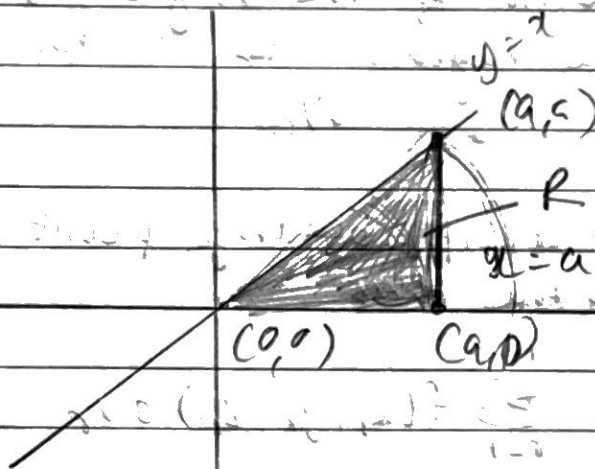 y=x
(a,a)
R
x=a
(0,0)
(a,0)